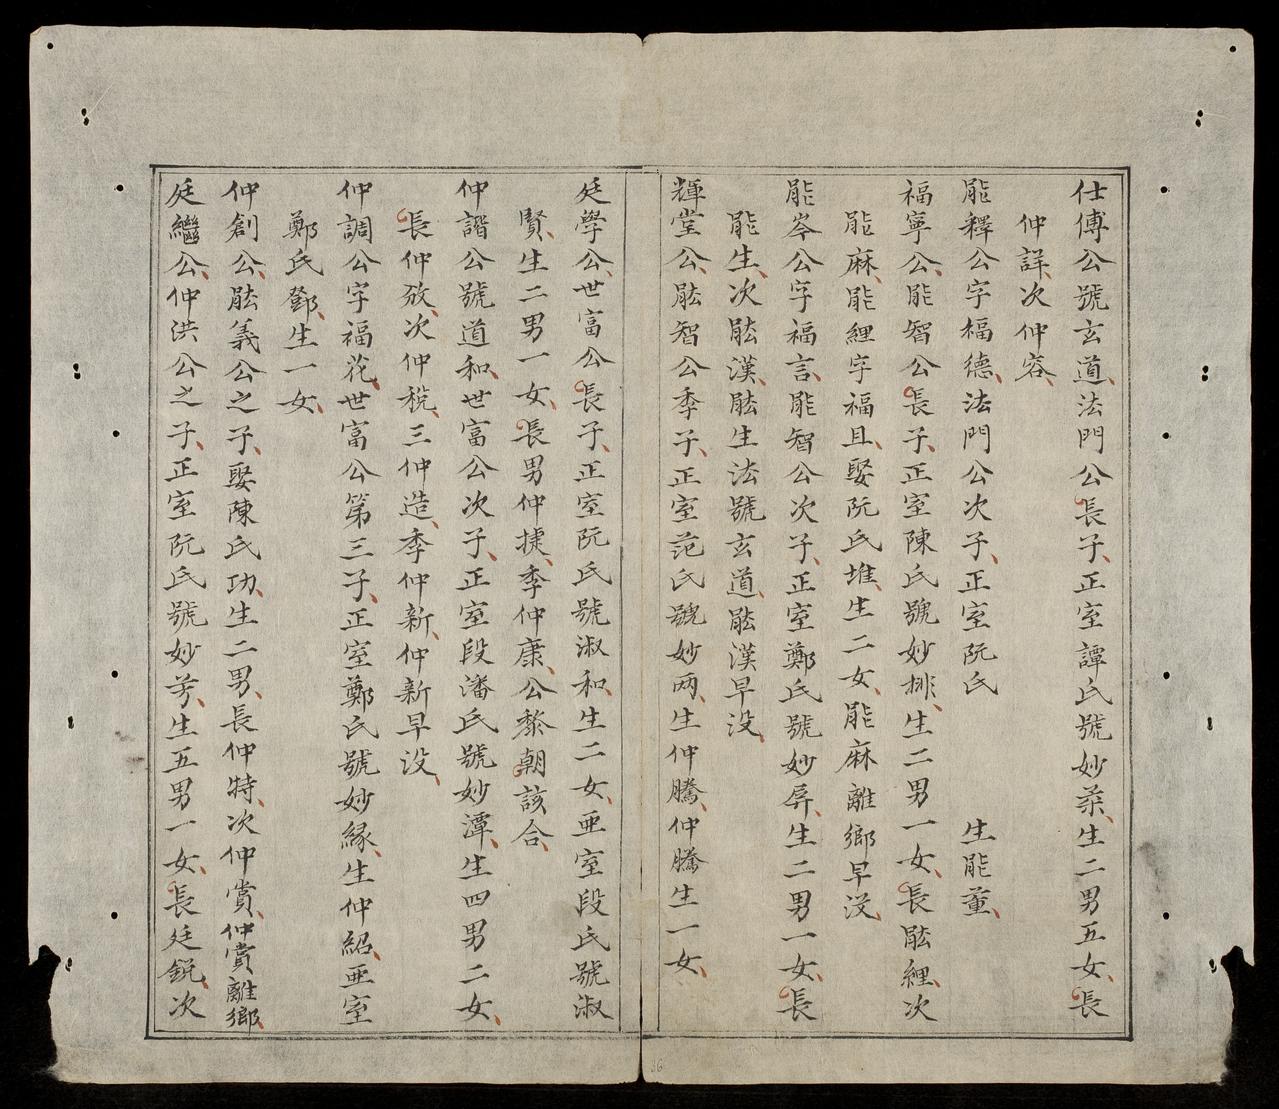 仕傅公號玄道法門公長子正室譚氏號妙菜生二男五女長
仲詳次仲容
能釋公字福德法門公次子正室阮氏 生能董
福寧公能智公長子正室陳氏號妙排生二男一女長能貍次
能麻能貍字福且娶阮氏堆生二女能麻離鄉早没
能岑公字福言能智公次子正室鄭氏號妙孱生二男一女長
能生次能漢能生法號玄道能漢早没
輝堂公能智公季子正室范氏號妙两生仲騰仲騰生一女
廷學公世富公長子正室阮氏號淑和生二女亚室段氏號淑
賢生二男一女長男仲捷季仲康公黎朝該合
仲諧公號道和世富公次子正室段潘氏號妙潭生四男二女
長仲攷次仲税三仲造季仲新仲新早没
仲調公字福花世富公第三子正室鄭氏號妙緣生仲紹亚室
鄭氏鄧生一女
仲創公能義公之子娶陳氏功生二男長仲特次仲賞仲賞離鄉
廷繼公仲洪公之子正室阮氏號妙芳生五男一女長廷銳次